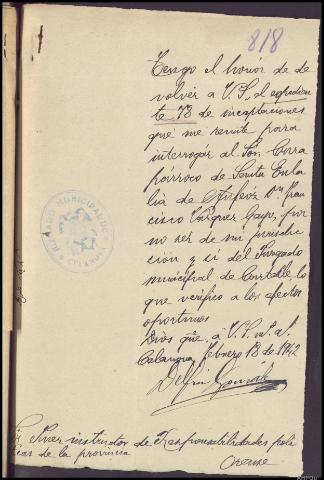 818
Tengo el honor de de
volver a V.S. el expedien
te 78 de incautaciones
que me remite para
interrogar al Sr. Cura
parroco de Santa Eula
lia de Dn. Fran
cisco Vazquez Gayo, por
no ser de mi jurisdic
cion y si del Juzgado
municipal de Cartelle lo
que verifico a los efectos
oportunos
Dios gue. a V.S. m. a.
Celanova, febrero 18 de 1942
Delfin
Juez instructor de Responsabilidades poli
ticas de la provincia
Orense
JUZGADO MUNICIPAL DE
CELANOVA